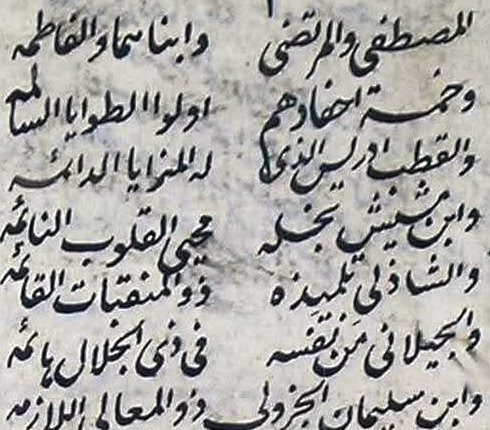 المصطفى والمرتضى وابناهما والفاطمه
وخمسة احفادهم اولوا الطوايا السالمه
والقطب ادريس الذى له المزايا الدائمه
وابن مشيش نجله محيى القلوب النائمه
والشاذلى تلميذه ذو المنقبات القائمه
والجيلانى من نفسه فى ذى الجلال هائمه
وابن سليمان الجزولى ذو المعالى اللازمه